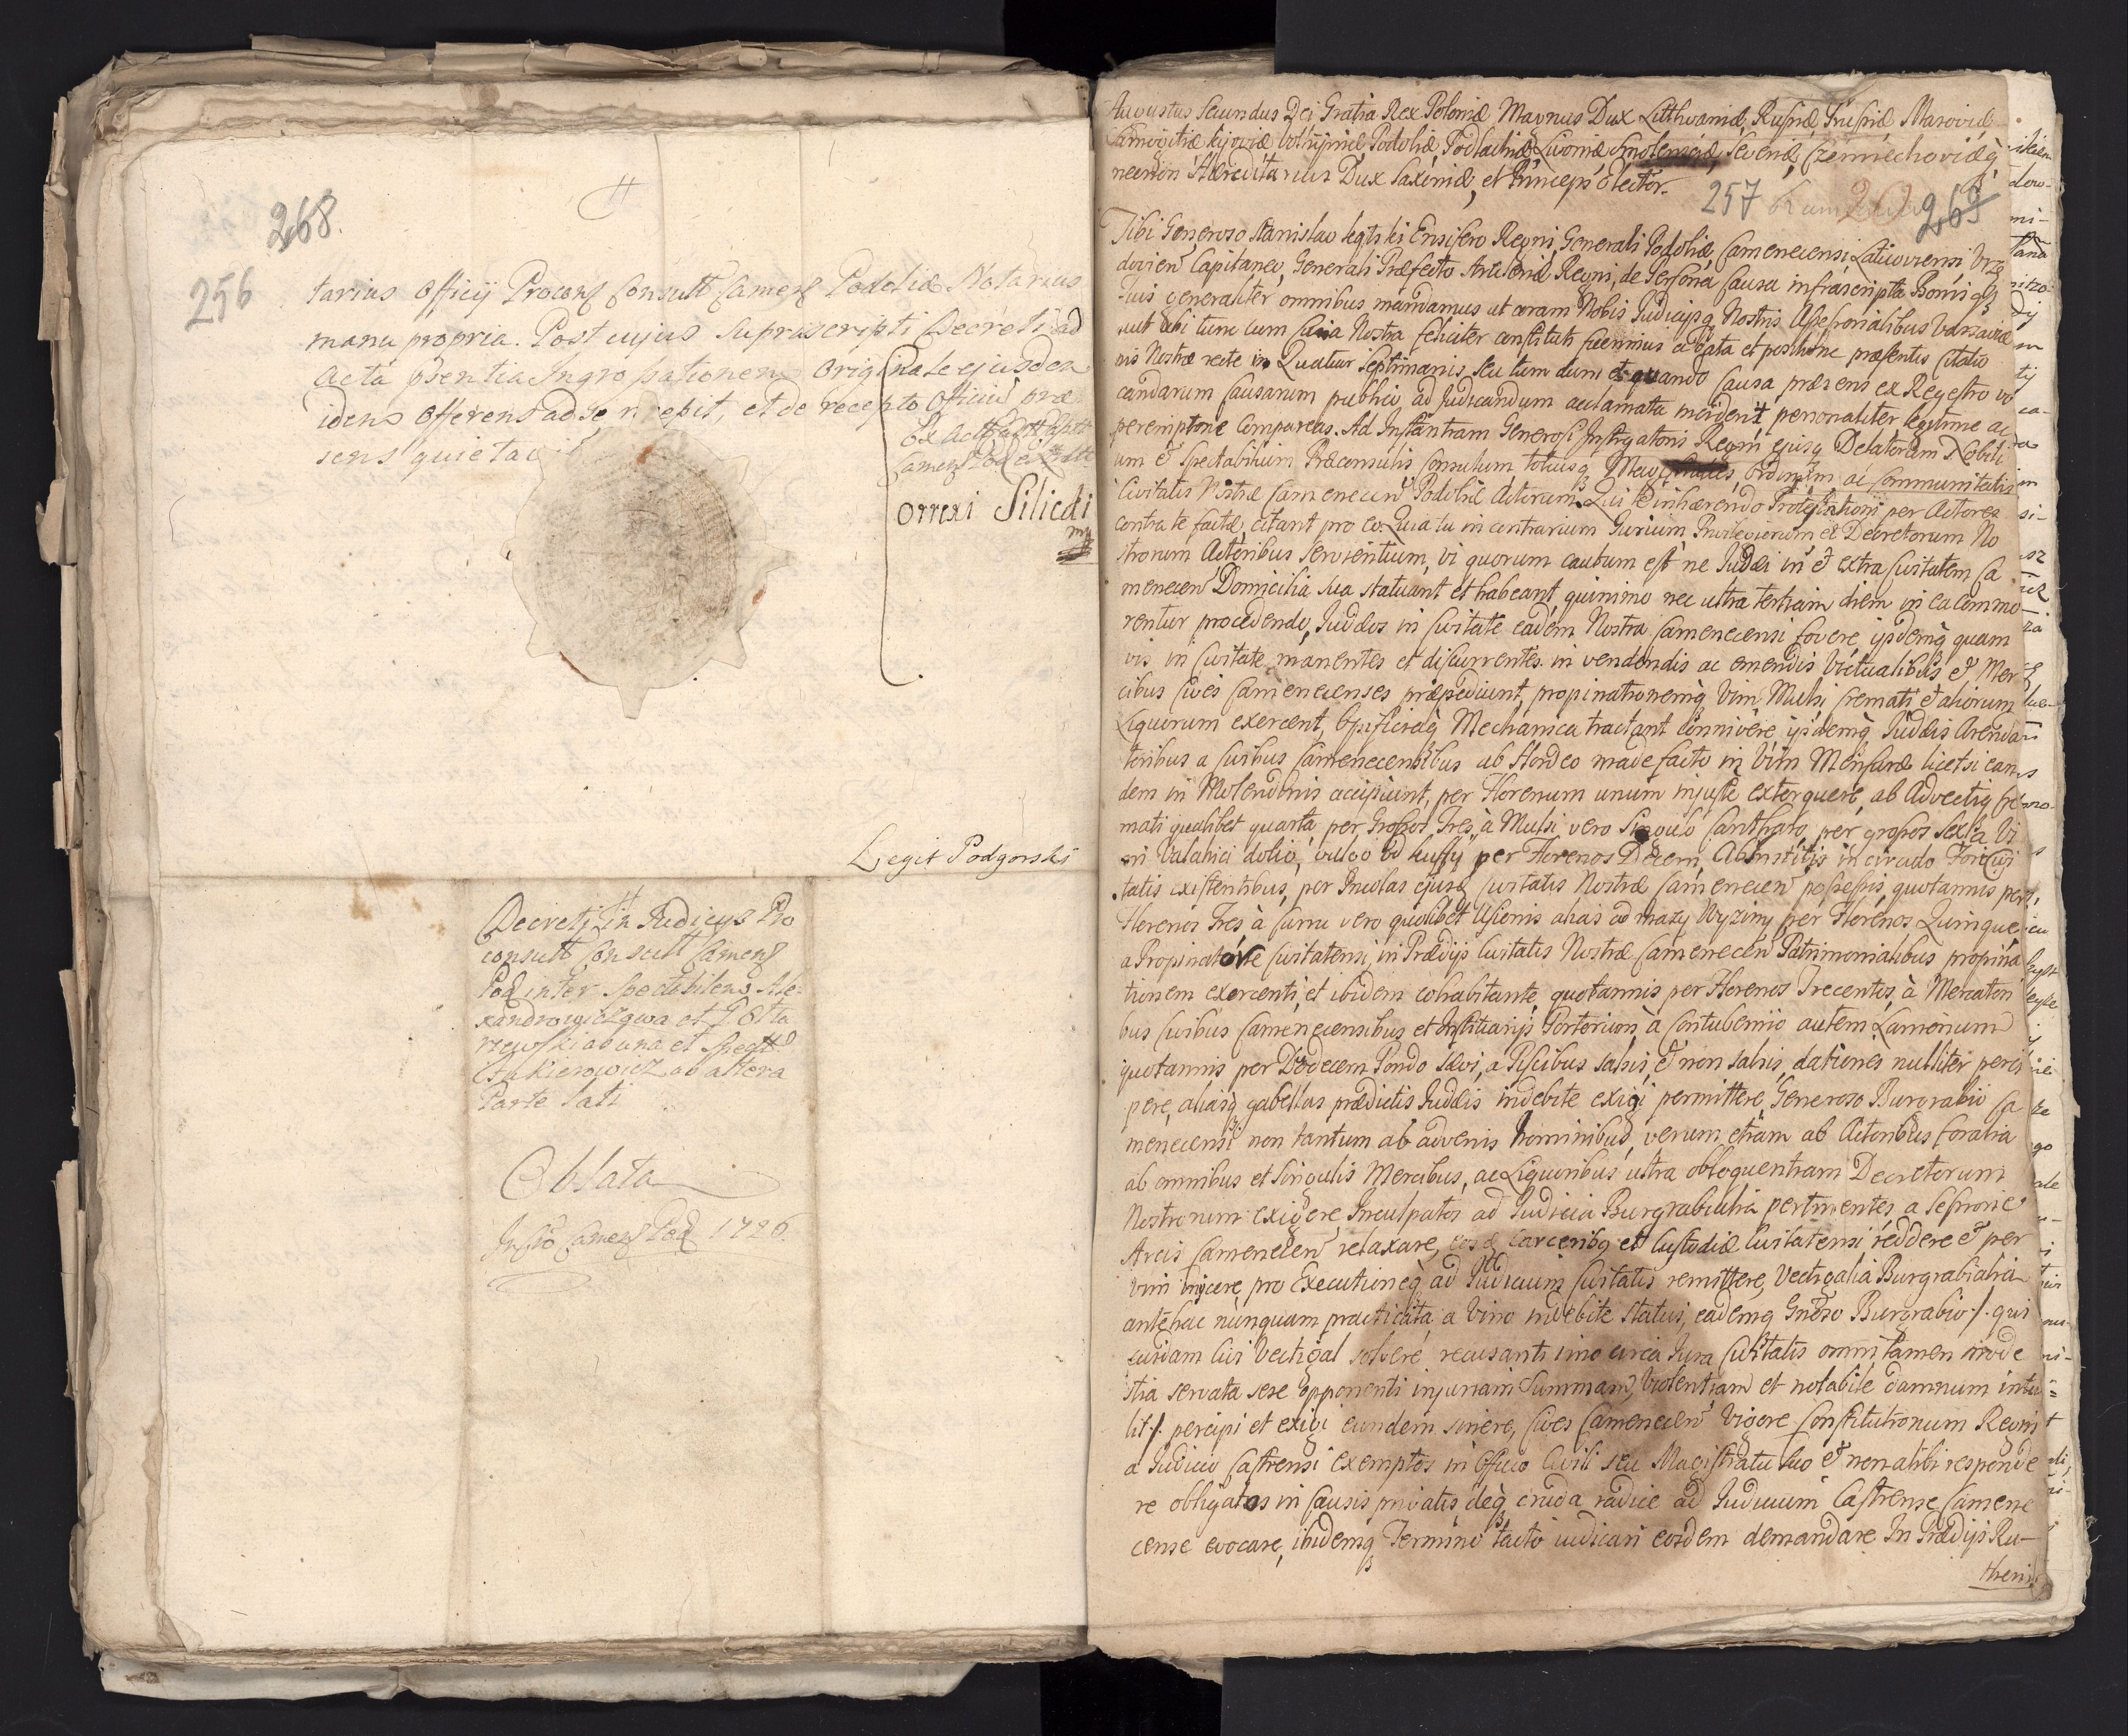 268.
256
tarius Officij Procons Consult Camens Podoliæ Notarius
manu propria. Post cujus Suprascripti Decreti ad
Acta Præsentia Ingrossationem Originale ejusdem
idens Offerens ad se recepit, et de recepto Officiũ præ
sens quietavit
Camens Pod
orrexi Silicdi
mp
Legit Podgorski
Decreti in Judicijs Pro
consult Consult Camens
Pod inter Spectabilem Ale=
xandrowiczowa et
rzewski ab una et Spectt
ab altera
Parte lati
Oblata
Camens Pod 1726.
Augustus Secundus Dei Gratia Rex Poloniæ Magnus Dux Litthvaniæ, Russiæ, Prussiæ Masoviæ
Samogitiæ Kijoviæ Volhyniæ Podoliæ, Podlachiæ Livoniæ Smolensciæ, Seveniæ Czerniechoviæq
necnon Hæreditarius Dux Saxoniæ, et Princeps Elector.
257 20 269
Tibi Generoso Stanislao Ensifero Regni, Generali Podoliæ Camenecensi, Laticoviensi
Capitaneo, Generali Præfecto Artileriæ Regni, de Persona Causa infrascripta Bonisq
tuis generaliter omnibus mandamus ut coram Nobis Judicijsq Nostris Assessorialibus Varsaviæ
aut ubi tunc cum Curia Nostra feliciter constituti fuerimus a data et positione præsentis Citatio
nis Nostræ recte in Quatuor Septimanis, seu tum dum et quando Causa præsens ex Regestro vo
candarum Causarum publico ad Judicandum acclamata inciderit personaliter legitime ac
peremptorie Compareas. Ad Instantiam Generosi Instigatoris Regni ejusq Delatorum Nobili
um et Spectabilium Præconsulis Consulum totiusq Ordinum ac Communitatis
Civitatis Nostræ Camenecen Podoliæ Actorum. Qui Te inhærendo Protestationi per Actores
contra te factæ, citant pro eo. Quia tu in contrarium Jurium Privilegiorum et Decretorum No
strorum Actoribus servientium, vi quorum cautum est ne Judæi in et extra Civitatem Ca
menecen Domicilia sua statuant et habeant, quinimo nec ultra tertiam diem in ea commo
rentur procedendo, Judæos in Civitate eadem Nostra Camenecensi fovere, ijsdemq quam
vis in Civitate manentes et discurrentes in vendendis ac emendis Victualibus et Mer
cibus Cives Camenecenses præpediunt, propinationemq Vini Mulsi cremati et aliorum
Liquorum exercent, Opificiaq Mechanica tractant connivere, ijsdemq Judæis Arenda
toribus a Civibus Camenecensibus ab Hordeo madefacto in Vim Mensuræ licet si ean
dem in Molendinis accipiunt, per Florenum unum injuste extorquere, ab Advectis cre
mati qualibet quarta per Grossos Tres, à Mulsi vero Singulo Cantharo per grossos Sex, a Vi
ni Valahici dolio, vulgo od kuffy per Florenos Decem, Ab Institis in circulo Fori Civi
tatis existentibus, per Incolas ejusd Civitatis Nostræ Camenecen possessis, quotannis per
Florenos Tres à Curru vero quolibet alias ad per Florenos Quinque
a Propinatore Civitatensi, in Prædijs Civitatis Nostræ Camenecen Patrimonialibus propina
tionem exercenti, et ibidem cohabitante, quotannis per Florenos Trecentos, à Mercatori
bus Civibus Camenecensibus et Institiarijs Portorium, à Contubernio autem Lanionum
quotannis per Duodecem Pondo Sævi, a Piscibus Salsis, et non Salsis, dationes nulliter perci
pere, aliasq gabellas prædictis Judæis indebite exigi permittere, Generoso Burgrabio Ca
menecensi non tantum ab advenis hominibus, verum etiam ab Actoribus foralia
ab omnibus et Singulis Mercibus, ac Liquoribus ultra obloquentiam Decretorum
Nostrorum exigere Inculpatos ad Judicia Burgrabialia pertinentes a Sessione
Arcis Camenecen relaxare, carceribq et Custodiæ Civitatensi reddere et per
vim injicere, pro Executioneq ad Judicium Civitatis remittere, Vectigalia Burgrabialia
antehac nunquam practicata a Vino indebite statui, eademq Gnroso Burgrabio ·/· qui
cuidam Civi Vectigal solvere recusanti imo circa Jura Civitatis omni tamen mode
stia servata sese opponenti injuriam Summam, Violentiam et notabile damnum intu
lit ·/· percipi et exigi eundem sinere, Cives Camenecen Vigore Constitutionum Regni
a Judicio Castrensi exemptos in Officio Civili seu Magistratu suo et non alibi responde
re obligatos in Causis privatis deq cruda radice ad Judicium Castrense Camene
cense evocare, ibidemq Termino tacto judicari eosdem demandare In Prædijs Ru-
theni